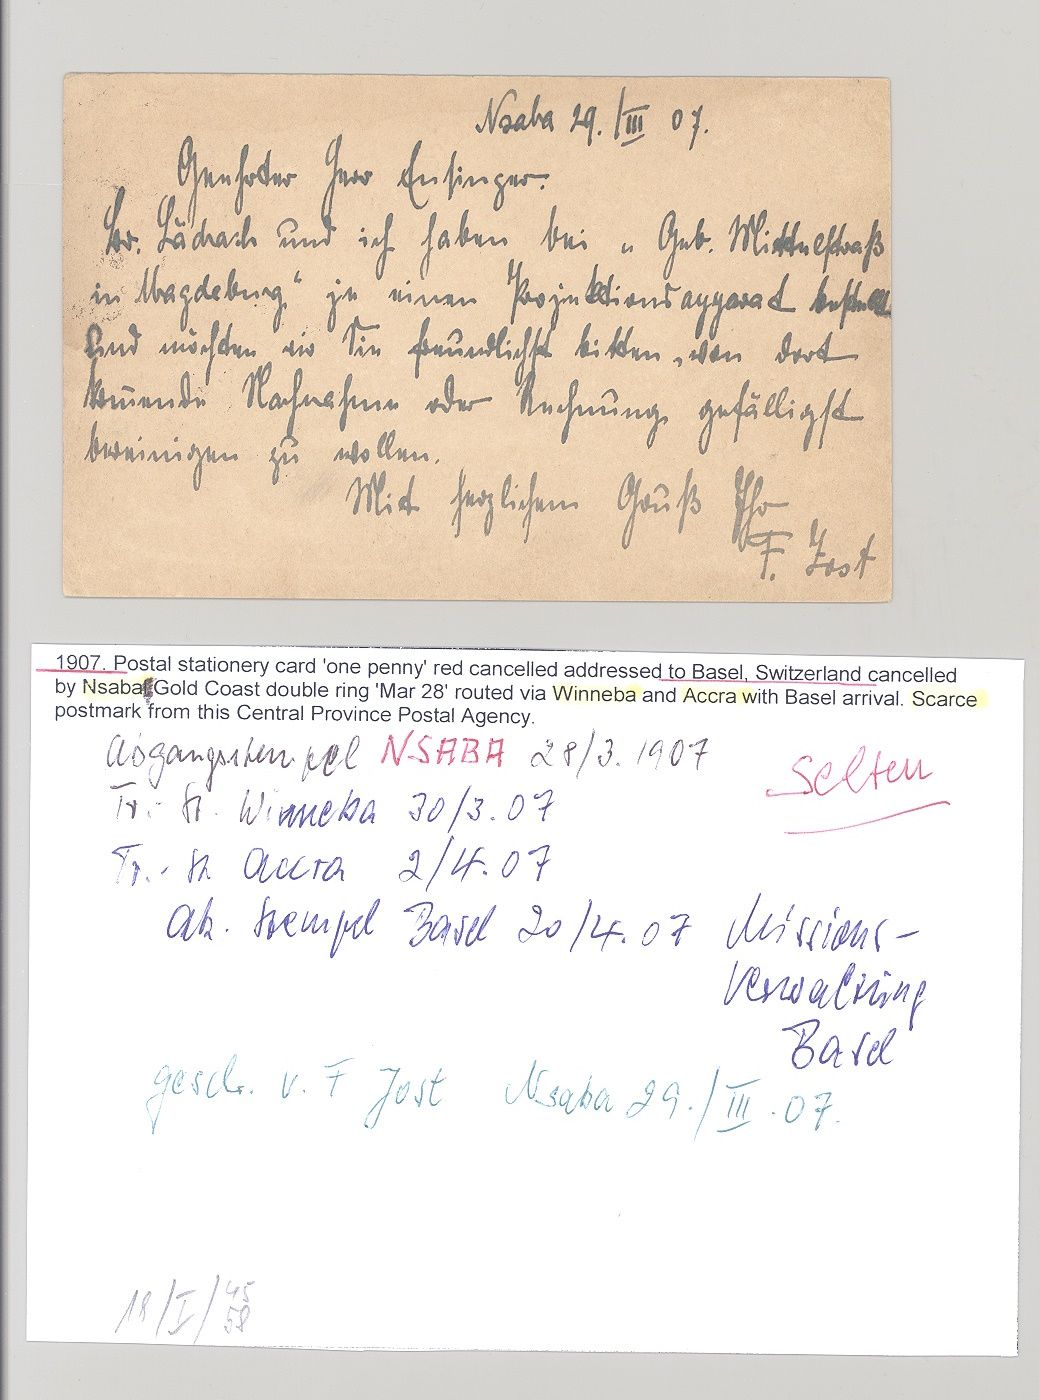 Nsaba 29./III 07.
Geehrter Herr Ensinger.
Br. Lädrach und ich haben bei „Geb. Mittelstraß
in Magdeburg“ je einen Projektionsapparat bestellt
und möchten wir Sie freundlichst bitten, von dort
kommende Nachnahme oder Rechnung gefälligst
bereinigen zu wollen.
Mit herzlichem Gruß Ihr
F. Jost
1907. Postal stationery card 'one penny' red cancelled addressed to Basel, Switzerland cancelled
by Nsaba Gold Coast double ring 'Mar 28' routed via Winneba and Accra with Basel arrival. Scarce
postmark from this Central Province Postal Agency.
Abgangsstempel NSABA 28/3.1907
Selten
Tr.- St. Winneba 30/3.07
Tr.- St. Accra 2/4.07
Ak. Stempel Basel 20/4.07 Missions-
Verwaltung
Basel
geschr. v. F Jost Nsaba 29./III.07.
18/I/45
58